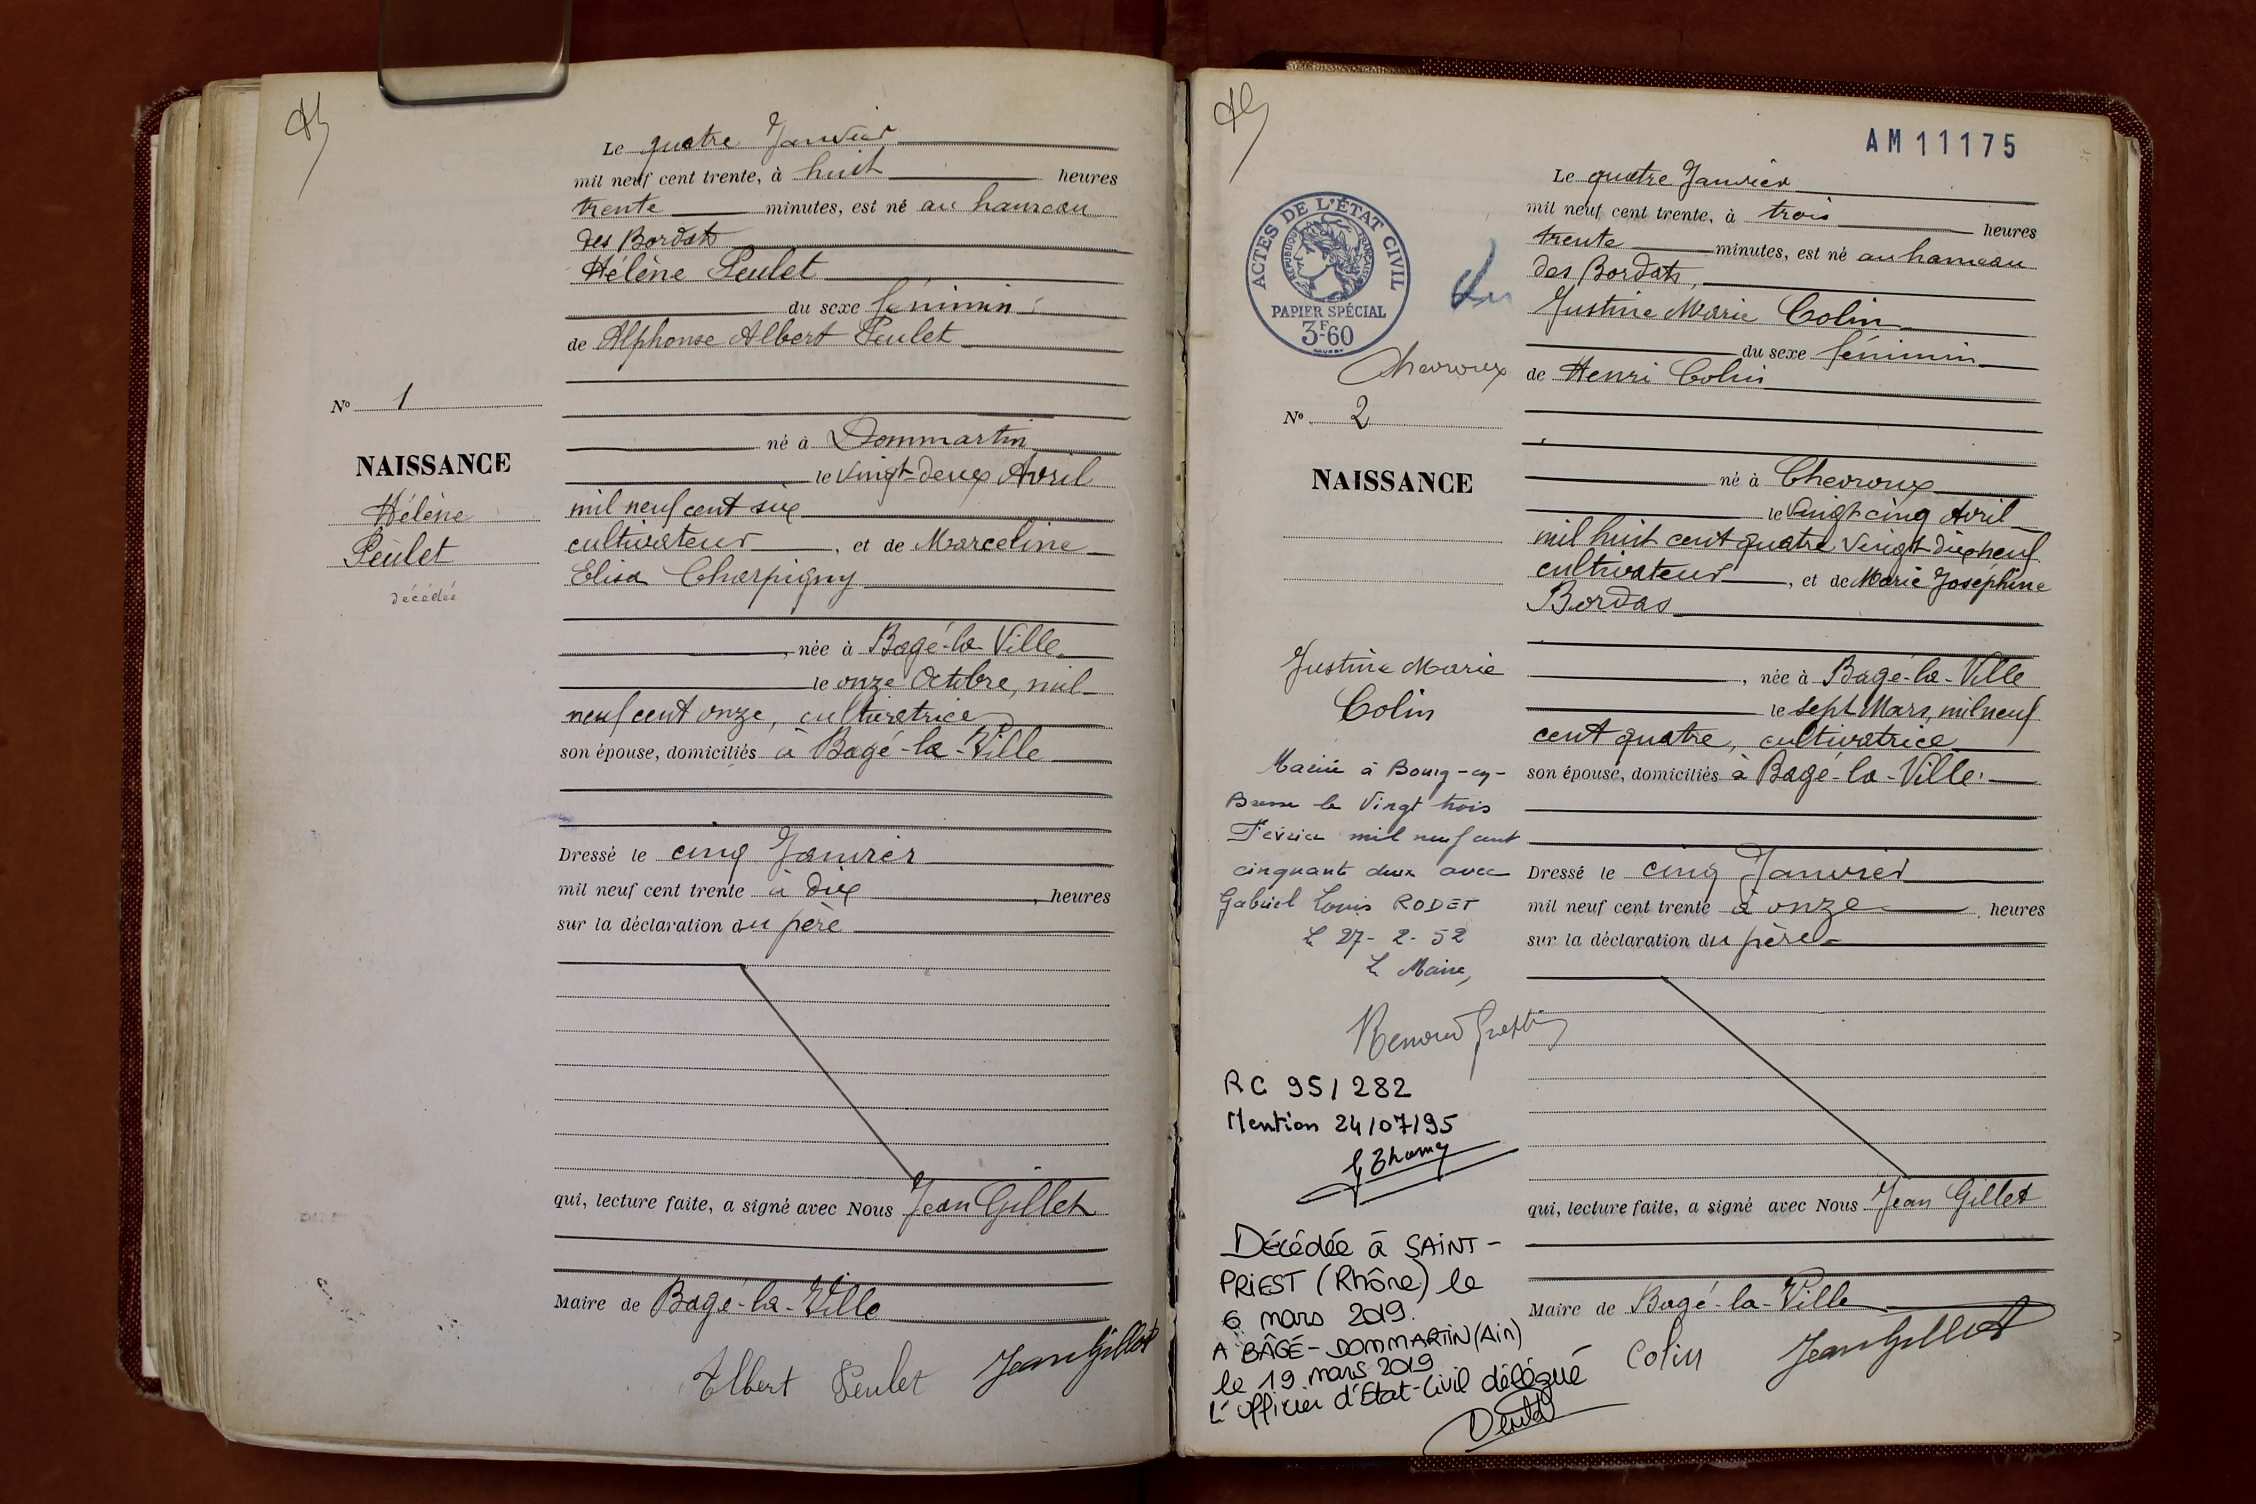 Le quatre Janvier
mil neuf cent trente, à huit heures
trente minutes, est né au hameau
des Bordats
Hélène Peulet
du sexe féminin
de Alphonse Albert Peulet
né à Dommartin
le vingt-deux Avril
mil neuf cent six
cultivateur, et de Marceline
Elisa Charpigny
née à Bagé-la-Ville
le onze Octobre, mil
neuf cent onze, cultivatrice
son épouse, domiciliés à Bagé-la-Ville
Dressé le cinq Janvier
mil neuf cent trente à dix, heures
sur la déclaration du père
qui, lecture faite, a signé avec Nous Jean Gillet
Maire de Bagé-la-Ville
Albert Peulet Jean Gillet
N° 1
NAISSANCE
Hélène
Peulet
décédée
AM 11175
Le quatre Janvier
mil neuf cent trente, à trois heures
trente minutes, est né au hameau
des Bordats,
Justine Marie Colin
du sexe féminin
de Henri Colin
né à Chevroux
le Vingt cinq Avril
mil huit cent quatre Vingt-dix neuf
cultivateur, et de Marie Joséphine
Bordas
, née à Bagé-la-Ville
le sept Mars, mil neuf
cent quatre, cultivatrice
son épouse, domiciliés à Bagé-la-Ville.
Dressé le cinq Janvier
mil neuf cent trente à onze heures
sur la déclaration du père
qui, lecture faite, a signé avec Nous Jean Gillet
Maire de Bagé-la-Ville
Colin Jean Gillet
ACTES DE L'ÉTAT CIVIL
RÉPUBLIQUE FRANÇAISE
PAPIER SPÉCIAL
3F60
Chevroux
N° 2
NAISSANCE
Justine Marie
Colin
Mariée à Bourg-en-
Bresse le Vingt trois
Février mil neuf cent
cinquante deux avec
Gabriel Louis RODET
Le 27-2-52
Le Maire,
RC 95/282
Mention 24/07/95
Décédée à SAINT-
PRIEST (Rhône) le
6 mars 2019.
A BÂGÉ-DOMMARTIN (Ain)
le 19 mars 2019
L'officier d'État-Civil délégué